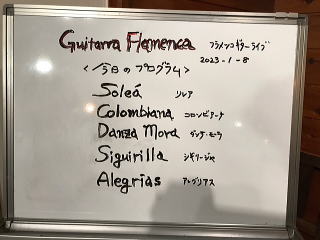 Guitarra Flemenca フラメンコギターライブ
2023-1-8
<今日のプログラム>
Soleá ソレア
Colombiana コロンビアーナ
Danza Mora ダンサ・モーラ
Siguirilla シギリージャ
Alegrias アレグリアス